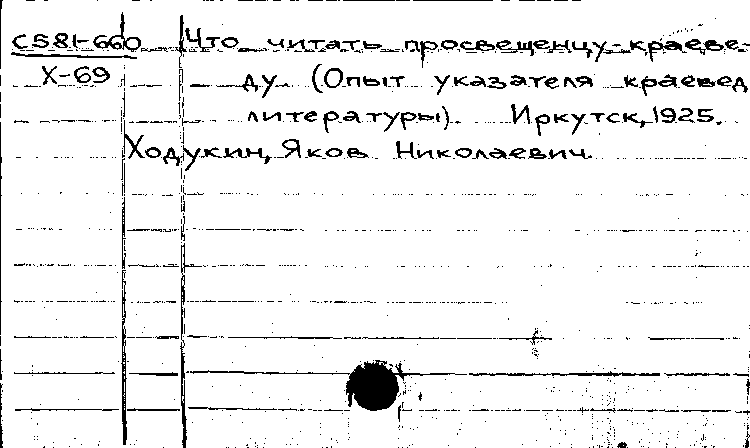 С581-660 Что читать просвещенцу-краеве-
Х-69 ду. (Опыт указателя краевед
литературы). Иркутск, 1925.
Ходукин, Яков Николаевич.